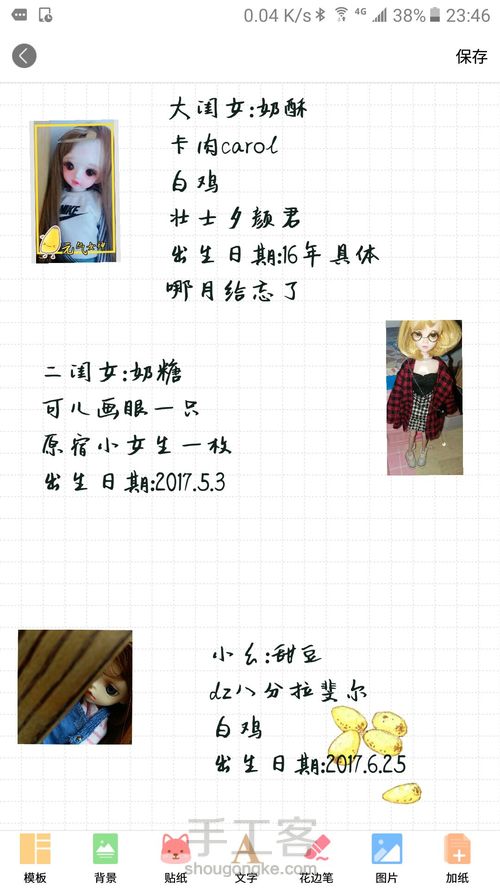 0.04 K/s 4G 38% 23:46
保存
大闺女:奶酥
卡肉carol
白鸡
壮士夕颜君
出生日期:16年具体
哪月给忘了
NIKE
元气女神
二闺女:奶糖
可儿画眼一只
原宿小女生一枚
出生日期:2017.5.3
小幺:甜豆
dz八分拉斐尔
白鸡
出生日期:2017.6.25
手工客
shougongke.com
模板 背景 贴纸 文字 花边笔 图片 加纸